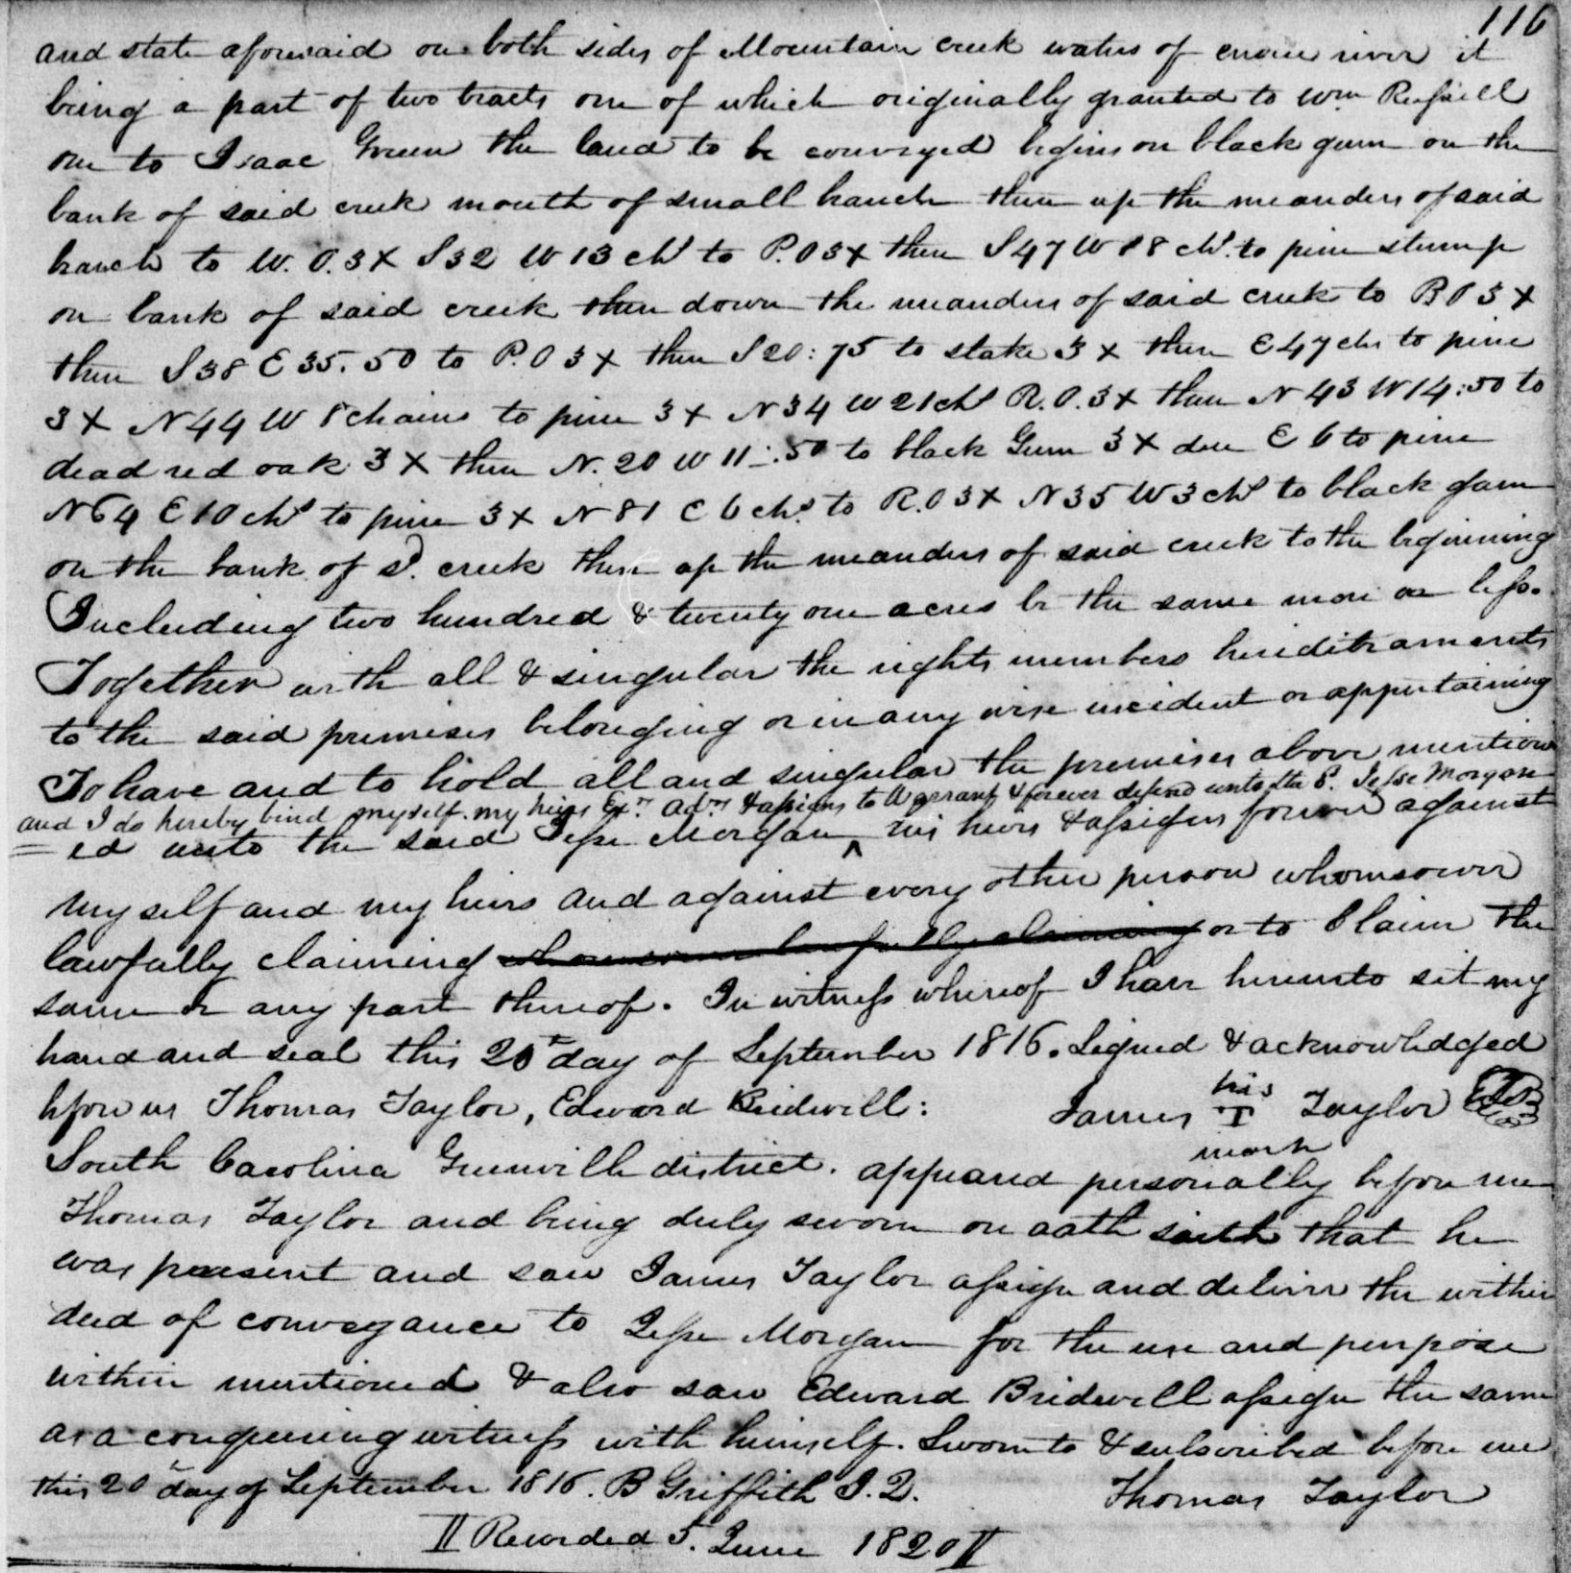 116
and state aforesaid on both sides of Mountain creek waters of enoree river it
being a part of two tracts one of which originally granted to Wm Russell
one to Isaac Green the land to be conveyed begins on black gum on the
bank of said creek mouth of small branch then up the meanders of said
branch to W. O. 3X S 32 W 13 chs to P.O 3X then S 47 W 18 chs. to pine stump
on bank of said creek then down the meanders of said creek to B O 3X
then S 38 E 35.50 to P.O 3X then S 20:75 to stake 3X then E 47 chs to pine
3X N 44 W 8 chains to pine 3X N 34 W 21 chs R.O. 3X then N 43 W 14:50 to
dead red oak 3X then N. 20 W 11:.50 to black Gum 3X due E 6 to pine
N 64 E 10 chs to pine 3X N 81 E 6 chs. to R.O 3X N 35 W 3 chs to black gum
on the bank of sd. creek then up the meanders of said creek to the beginning
Including two hundred & twenty one acres be the same more or less.
Together with all & singular the rights members hereditraments
to the said premises belonging or in any wise incident or appertaining
To have and to hold all and singular the premises above mention
and I do hereby bind myself my heirs Exrs. Admrs & assigns to Warrant & forever defend unto the Sd. Jesse Morgan
=ed unto the said Jesse Morgan ^ his heirs & assigns forever against
my self and my heirs and against every other person whomsoever
lawfully claiming whomsoever lawfully claiming or to Claim the
same or any part thereof. In witness whereof I have hereunto set my
hand and seal this 20th day of September 1816. Signed & acknowledged
before us Thomas Taylor, Edward Bridwell: James his T mark Taylor
South Carolina Greenville district. appeared personally before me
Thomas Taylor and being duly sworn on oath saith that he
was present and saw James Taylor assign and deliver the within
deed of conveyance to Jesse Morgan for the use and purpose
within mentioned & also saw Edward Bridwell assign the same
as a conquering witness with himself. Sworn to & subscribed before me
this 20th day of September 1816. B Griffith J.Q. Thomas Taylor
Recorded 5. June 1820